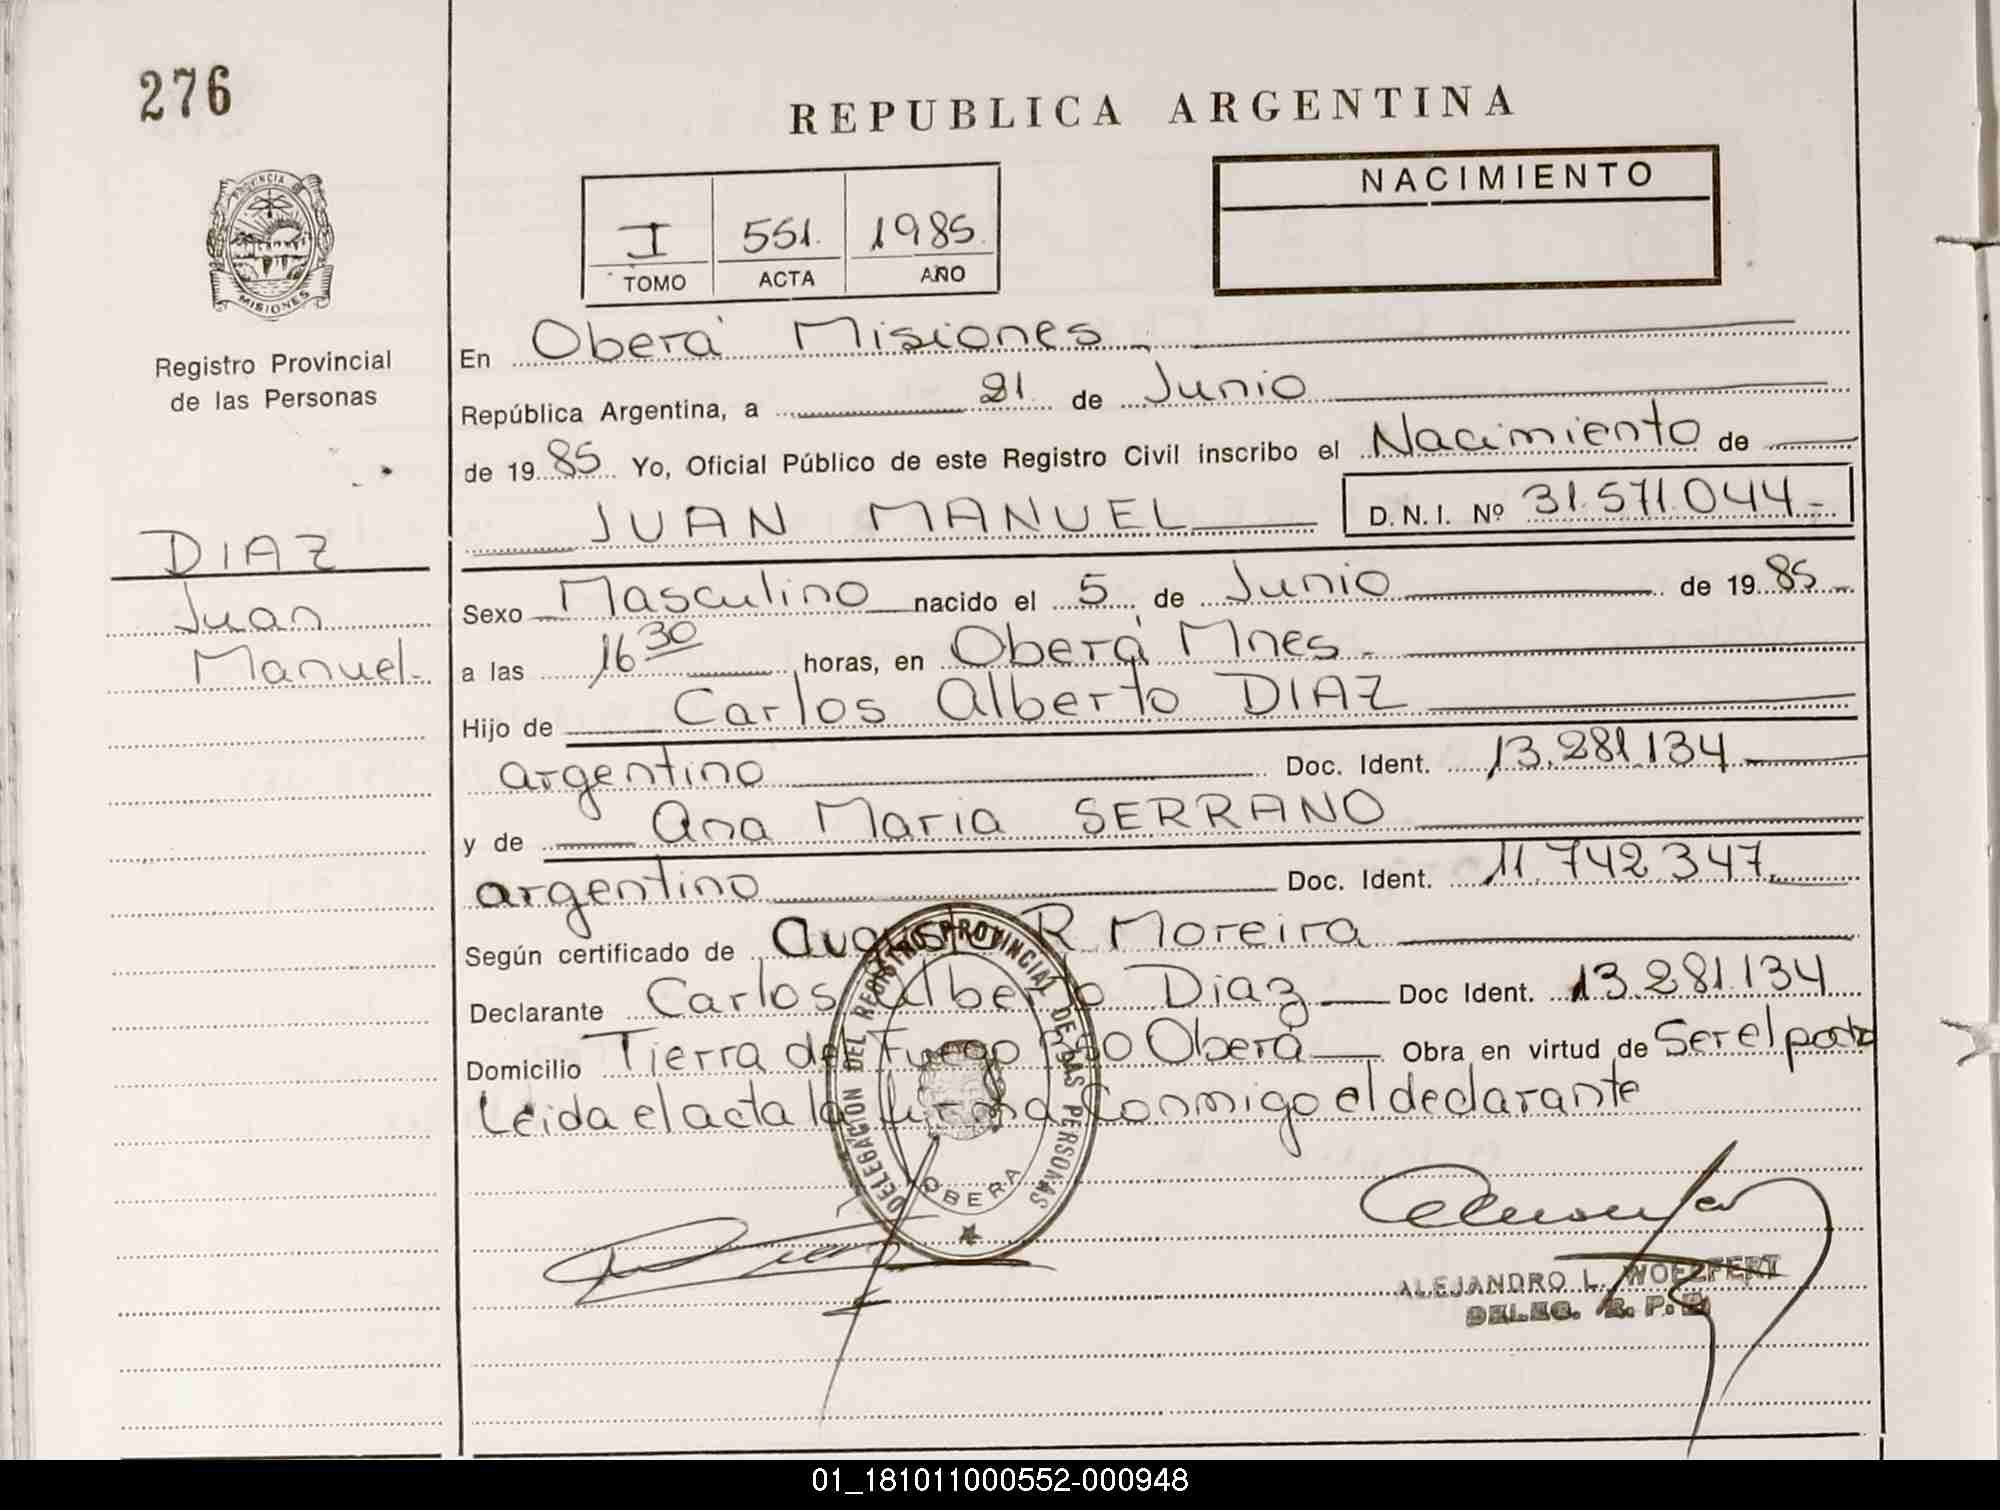 276
REPUBLICA ARGENTINA
PROVINCIA DE
MISIONES
I 551. 1985.
TOMO ACTA AÑO
NACIMIENTO
Registro Provincial
de las Personas
En Oberá Misiones
República Argentina, a 21 de Junio
de 1985 Yo, Oficial Público de este Registro Civil inscribo el Nacimiento de
JUAN MANUEL D.N.I. Nº 31.571.044-
DIAZ
Juan
Manuel-
Sexo Masculino nacido el 5 de Junio de 1985
a las 16 30 horas, en Oberá Mnes.
Hijo de Carlos Alberto DIAZ
argentino Doc. Ident. 13.281.134
y de Ana Maria SERRANO
argentino Doc. Ident. 11.742.347
Según certificado de Augusto R Moreira
Declarante Carlos Alberto Diaz Doc Ident. 13.281.134
Domicilio Tierra del Fuego Oberá Obra en virtud de Ser el padre
Leida el acta la firma Conmigo el declarante
DELEGACION DEL REGISTRO PROVINCIAL DE LAS PERSONAS
OBERA
ALEJANDRO L. WOEZFERT
DELEG. R. P. P.
01_181011000552-000948